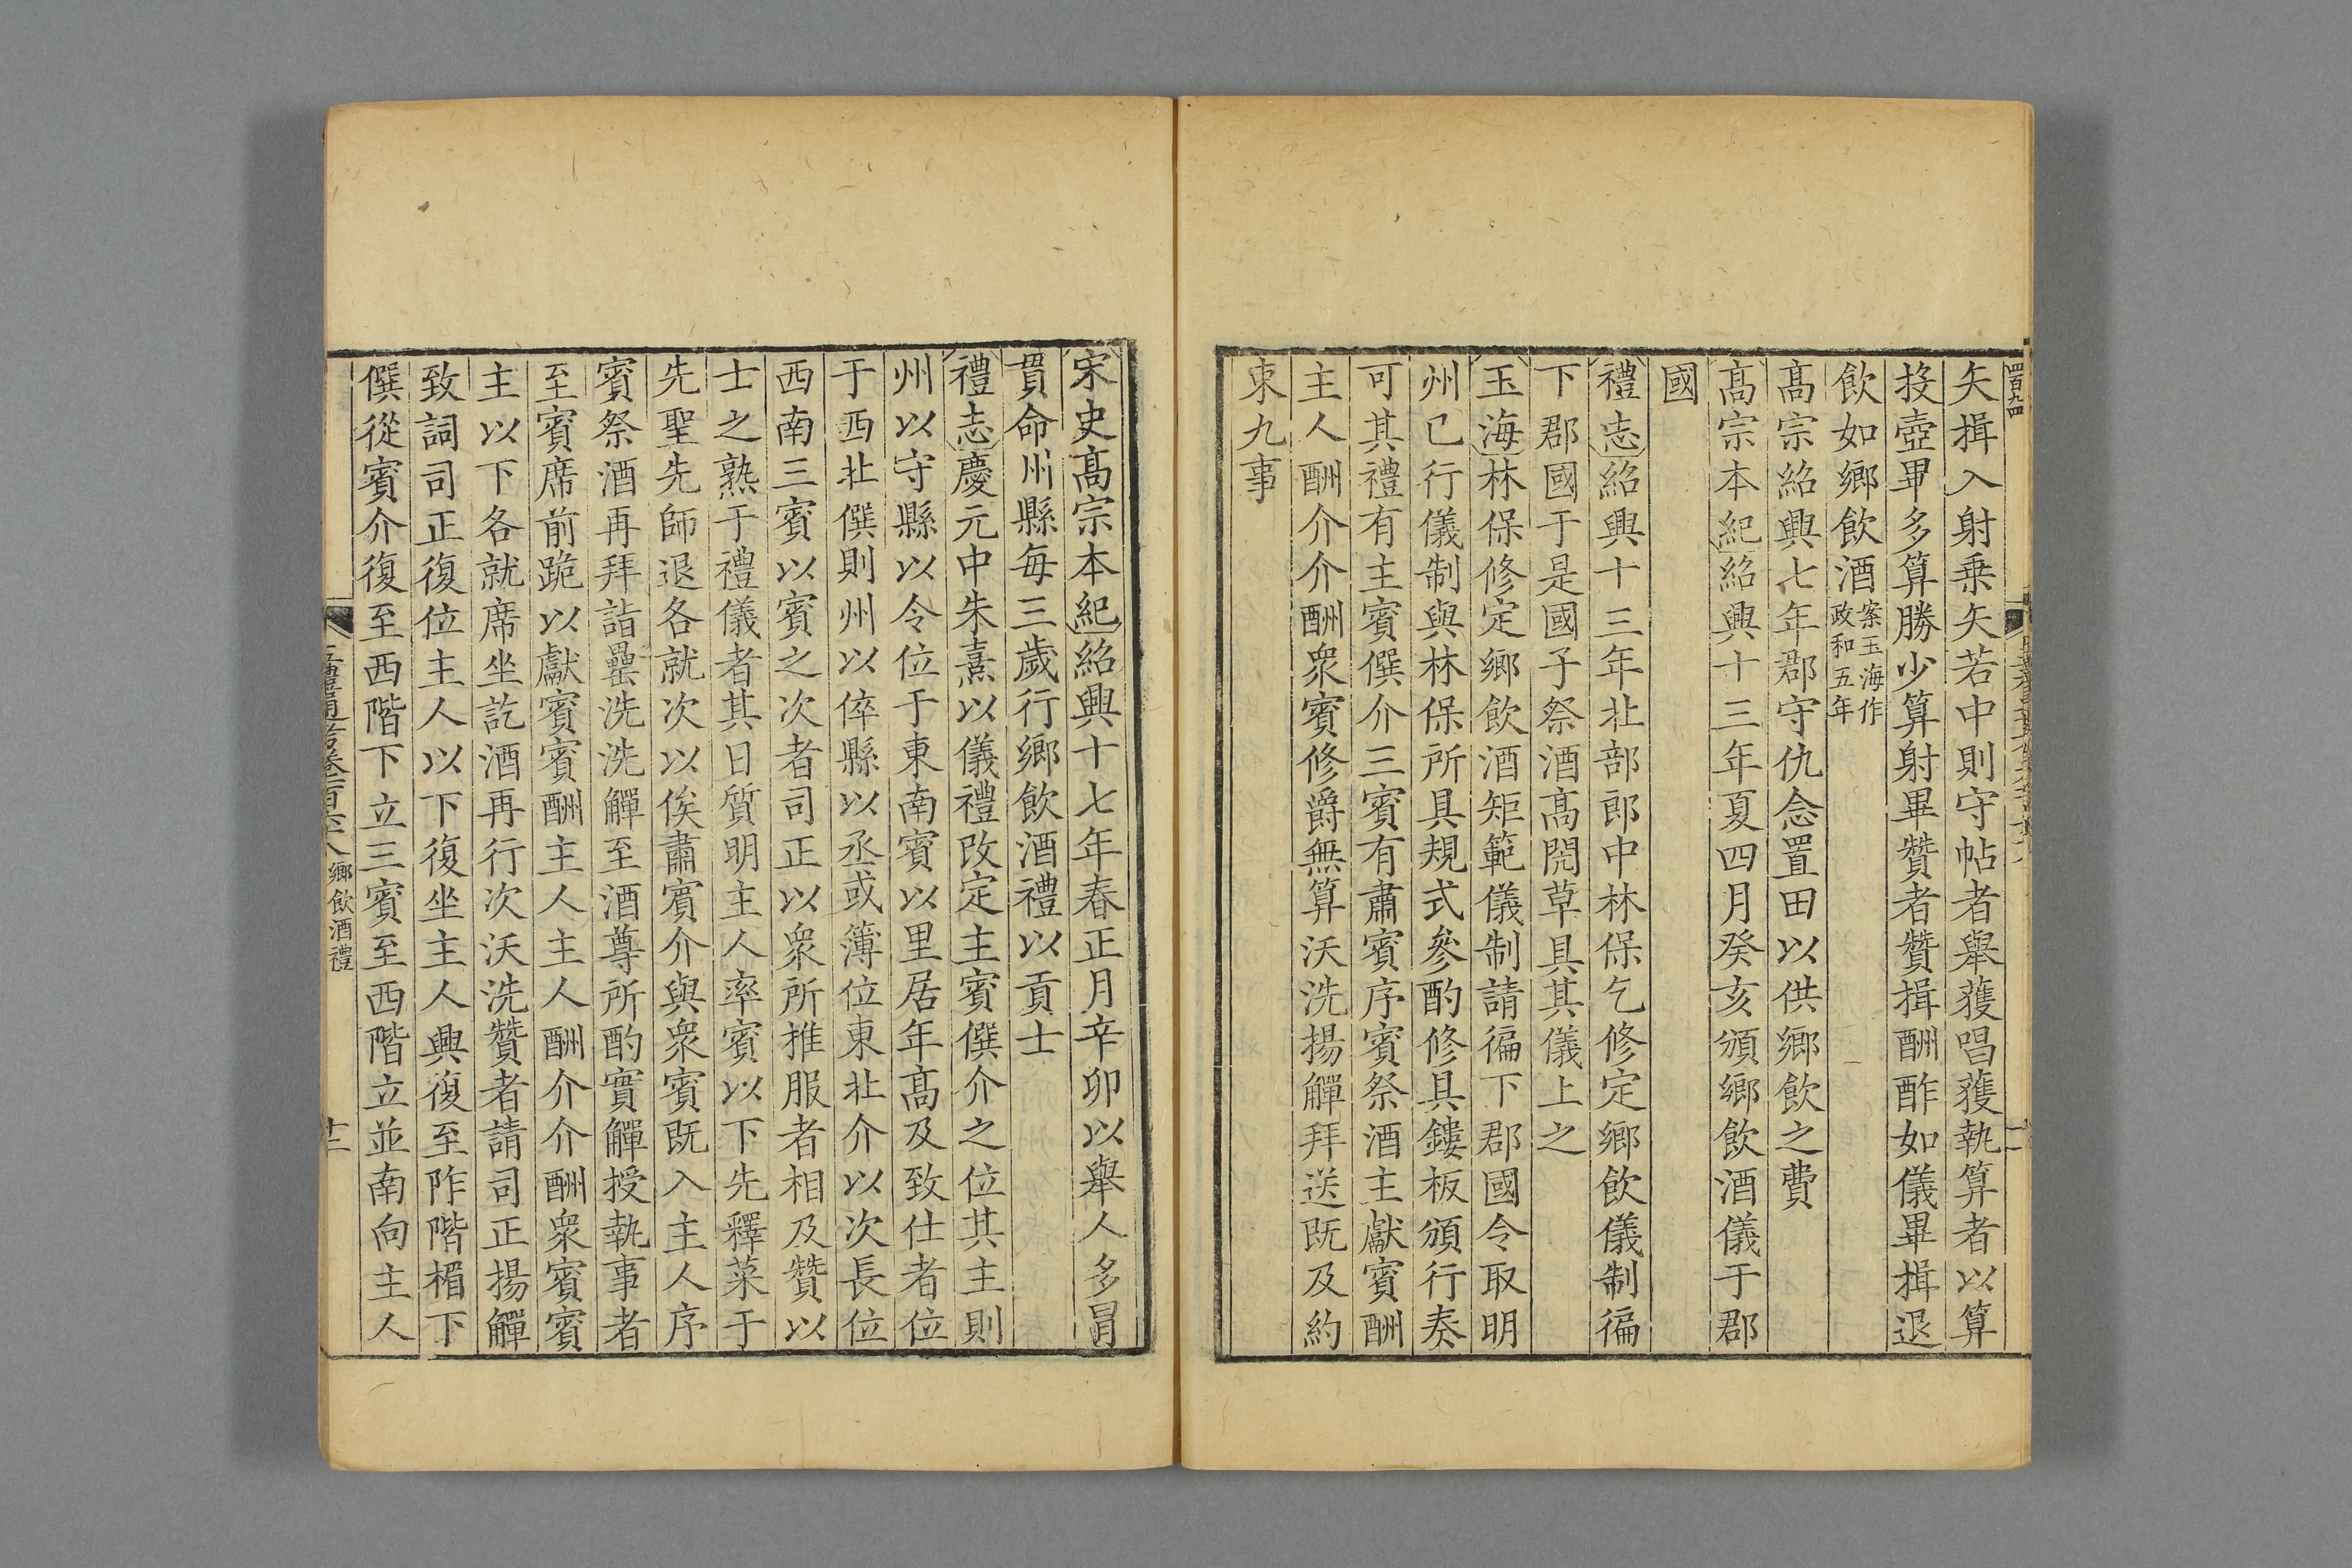 矢揖入射乗矢若中則守帖者舉獲唱獲執算者以算
投壺畢多算勝少算射畢贊者贊揖酬酢如儀畢揖退
飲如鄉飲酒案玉海作政和五年
高宗紹興七年郡守仇悆置田以供鄉飲之費
高宗本紀紹興十三年夏四月癸亥頒鄉飲酒儀于郡
國
禮志紹興十三年北部郎中林保乞修定鄉飲儀制徧
下郡國于是國子祭酒高閌草具其儀上之
玉海林保修定鄉飲酒矩範儀制請徧下郡國令取明
州已行儀制與林保所具規式參酌修具鏤板頒行奏
可其禮有主賓僎介三賓有肅賓序賓祭酒主獻賓酬
主人酬介介酬衆賓修爵無算沃洗揚觶拜送既及約
束九事
宋史高宗本紀紹興十七年春正月辛卯以舉人多冒
貫命州縣每三歲行鄉飲酒禮以貢士
禮志慶元中朱熹以儀禮改定主賓僎介之位其主則
州以守縣以令位于東南賓以里居年高及致仕者位
于西北僎則州以倅縣以丞或簿位東北介以次長位
西南三賓以賓之次者司正以衆所推服者相及贊以
士之熟于禮儀者其日質明主人率賓以下先釋菜于
先聖先師退各就次以俟肅賓介與衆賓既入主人序
賓祭酒再拜詣罍洗洗觶至酒尊所酌實觶授執事者
至賓席前跪以獻賓賓酬主人主人酬介介酬衆賓賓
主以下各就席坐訖酒再行次沃洗贊者請司正揚觶
致詞司正復位主人以下復坐主人興復至阼階楣下
僎從賓介復至西階下立三賓至西階立並南向主人
五禮通考卷一百六十八鄉飲酒禮
十二